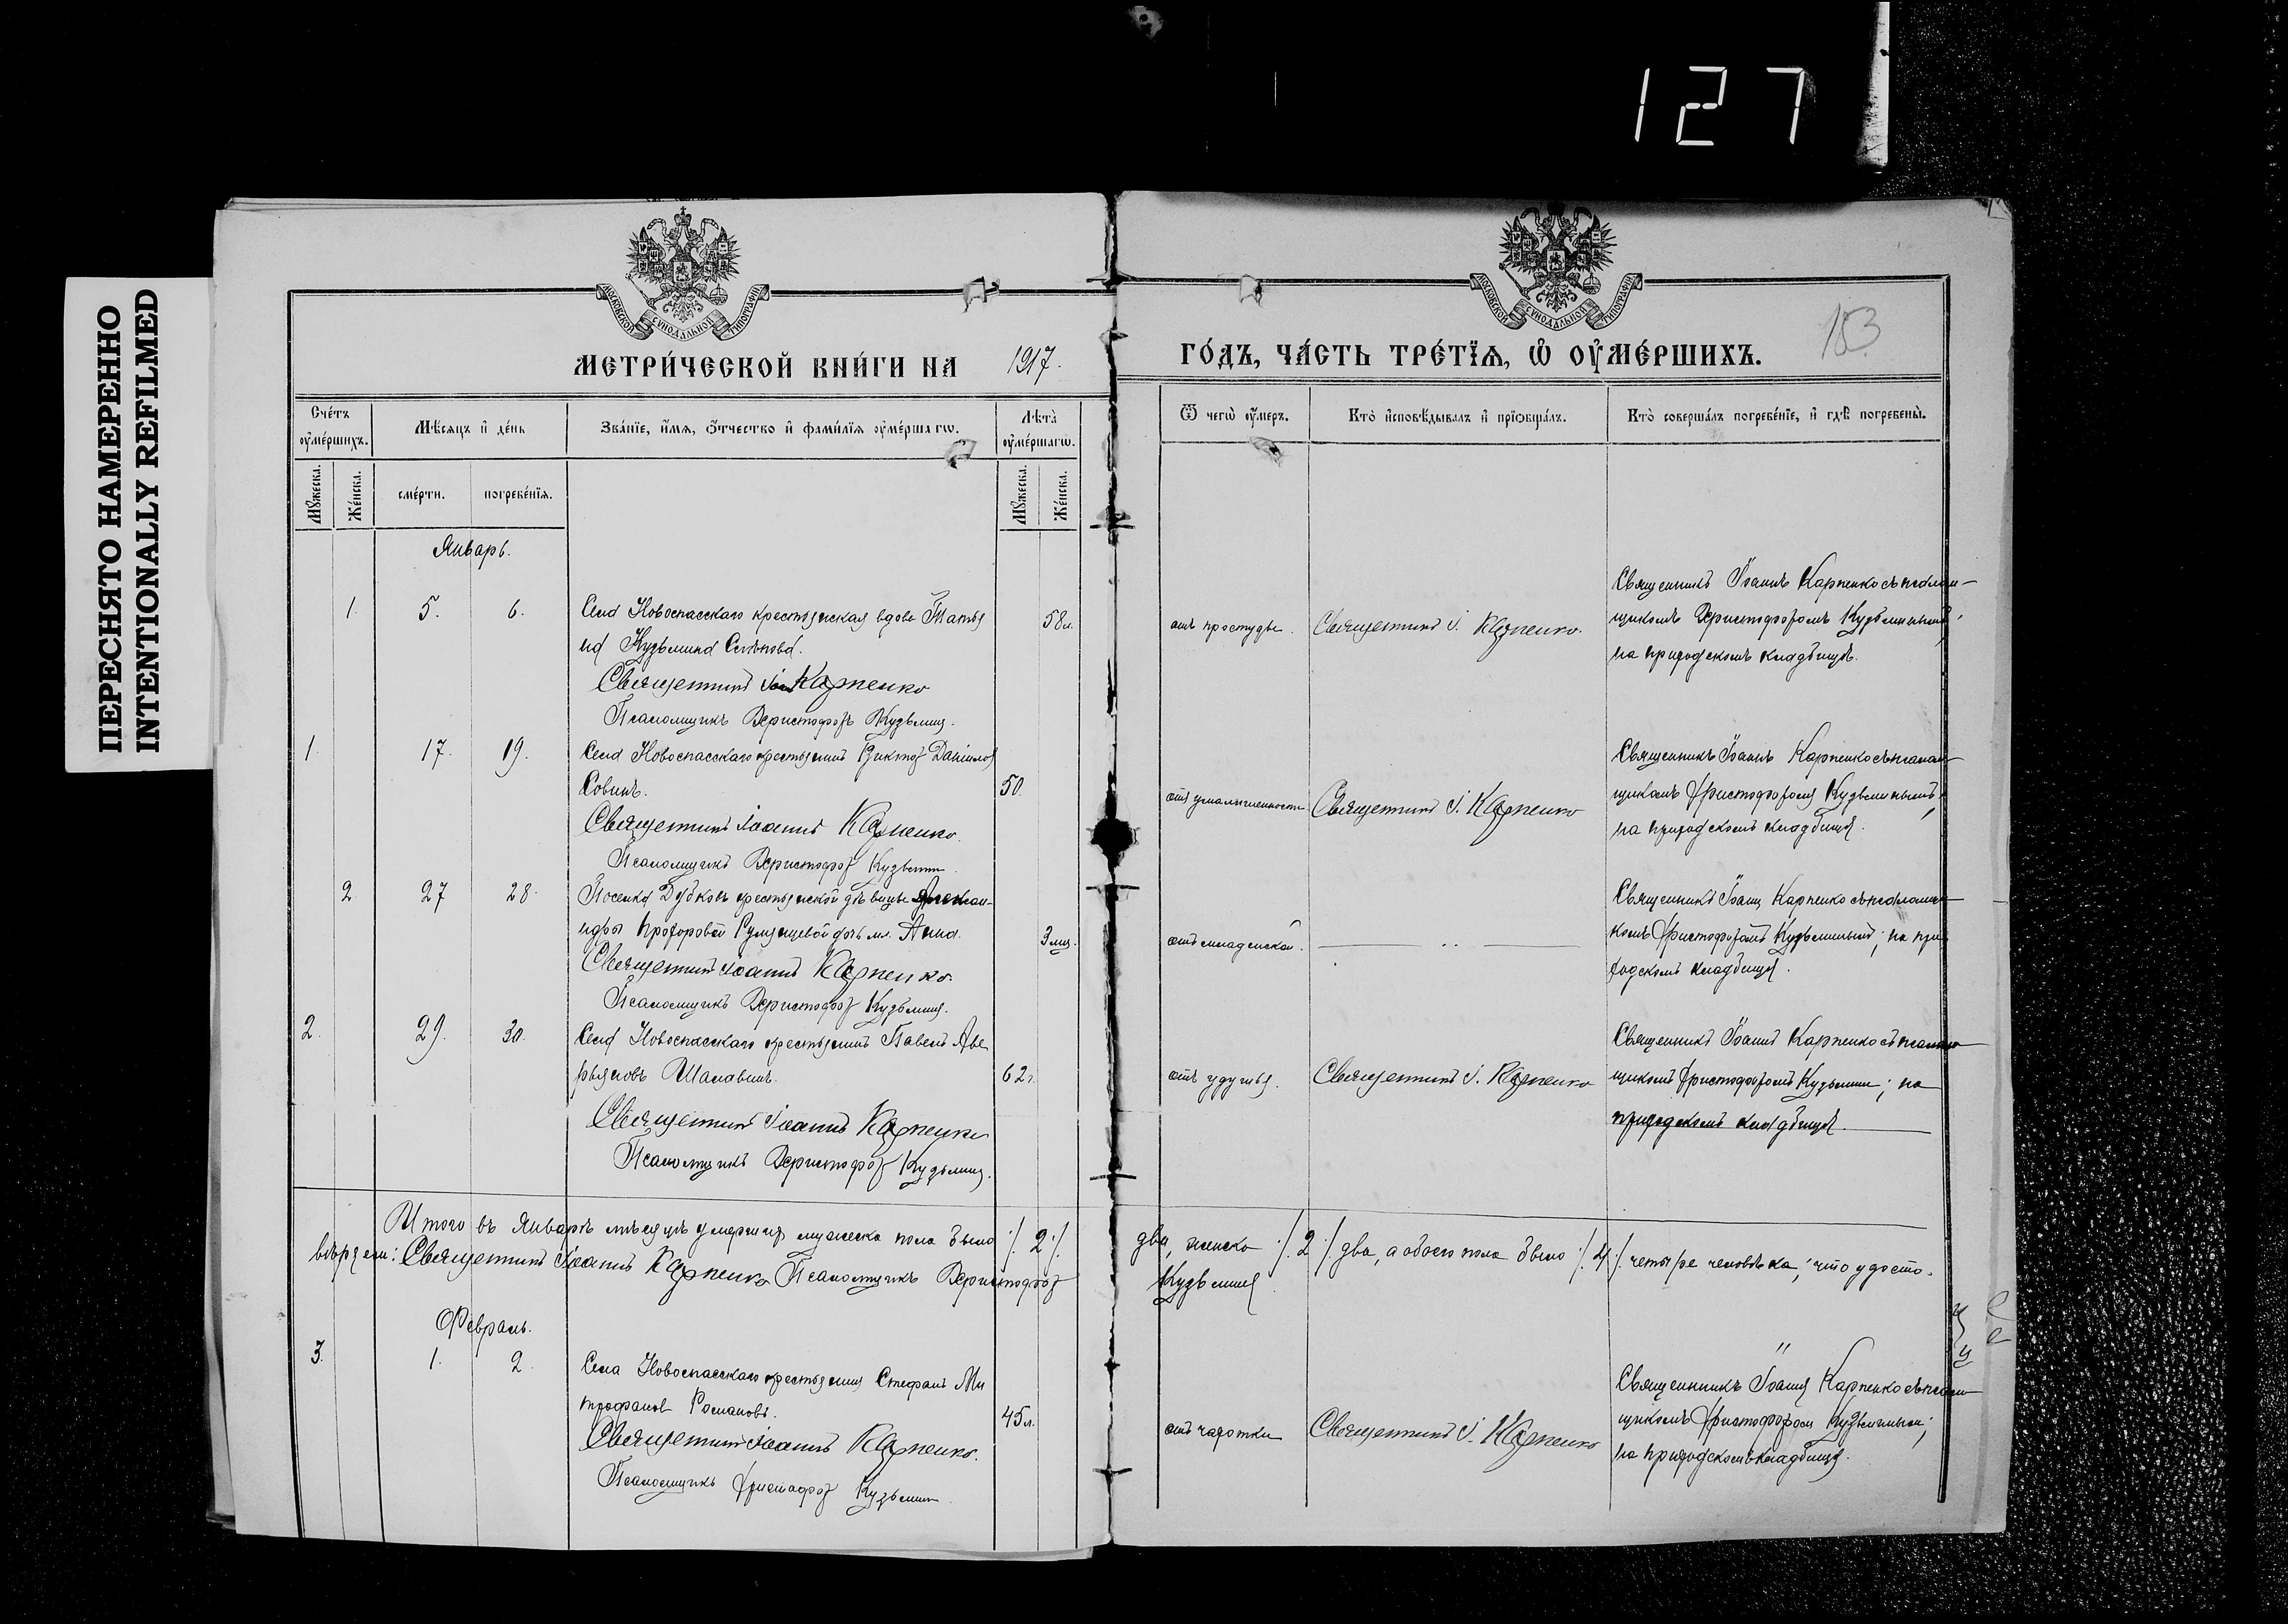 127
ПЕРЕСНЯТО НАМЕРЕННО
INTENTIONALLY REFILMED
МОСКОВСКОЙ СѴНОДАЛЬНОЙ ТИПОГРАФІИ
МОСКОВСКОЙ СѴНОДАЛЬНОЙ ТИПОГРАФІИ
МЕТРИ́ЧЕСКОЙ КНИ́ГИ НА 1917. ГО́ДЪ, ЧА́СТЬ ТРЕ́ТЇѦ, Ѡ҆ ОУ҆МЕ́РШИХЪ.
183
Сче́тъ оу҆ме́ршихъ.
Мѣ́сяцъ и҆ де́нь
Зва́нїе, и҆́мѧ, ѻ҆́тчество и҆ фами́лїѧ оу҆ме́ршагѡ.
Лѣ̑та̀ оу҆ме́ршагѡ.
Ѿ чегѡ̀ оу҆́меръ.
Кто̀ и҆сповѣ́дывалъ и҆ прїѡбща́лъ.
Кто̀ соверша́лъ погребе́нїе, и҆ гдѣ̀ погребены̀.
Мꙋ́жеска. Же́нска. сме́рти. погребе́нїѧ. Мꙋ́жеска. Же́нска.
Январь.
1. 5. 6. Села Новоспасскаго крестьянская вдова Татья
на Кузьмина 58 л.
Священникъ Карпенко
Псаломщикъ Христофоръ Кузьминъ.
отъ простуды. Священникъ І. Карпенко.
Священникъ Іоаннъ Карпенко съ псалом-
щикомъ Христофоромъ Кузьминымъ;
на приходскомъ кладбищѣ.
1. 17. 19. Села Новоспасскаго крестьянинъ Викторъ Даніиловъ
Совинъ. 50.
Священникъ Іоаннъ Карпенко.
Псаломщикъ Христофоръ Кузьминъ.
Священникъ І. Карпенко
Священникъ Іоаннъ Карпенко съ псалом-
щикомъ Христофоромъ Кузьминымъ;
на приходскомъ кладбищѣ.
2 27 28. Поселка Дубковъ крестьянской дѣвицы Алексан-
дры Прохоровой Румянцевой дочь мл. Анна. 3 мц.
Священникъ Іоаннъ Карпенко.
Псаломщикъ Христофоръ Кузьминъ.
отъ младенской.
Священникъ Іоаннъ Карпенко съ псаломщи-
комъ Христофоромъ Кузьминымъ; на при
ходскомъ кладбищѣ.
2. 29. 30. Села Новоспасскаго крестьянинъ Павелъ Аве
рьяновъ Шалавинъ. 62 г.
Священникъ Іоаннъ Карпенко
Псаломщикъ Христофоръ Кузьминъ.
отъ удушья. Священникъ І. Карпенко
Священникъ Іоаннъ Карпенко съ псалом-
щикомъ Христофоромъ Кузьминымъ; на
приходскомъ кладбищѣ.
Итого въ Январѣ мѣсяцѣ умершихъ мужеска пола было ·/. 2 ·/. два, женска ·/. 2 ·/. два, а обоего пола было ·/. 4 ·/. четыре человѣка; что удосто-
вѣряемъ: Священникъ Іоаннъ Карпенко Псаломщикъ Христофоръ Кузьминъ
Февраль.
3. 1. 2. Села Новоспасскаго крестьянинъ Стефанъ Ми
трофановъ Романовъ. 45 л.
Священникъ Іоаннъ Карпенко.
Псаломщикъ Христофоръ Кузьминъ.
отъ чахотки Священникъ І. Карпенко
Священникъ Іоаннъ Карпенко съ псалом-
щикомъ Христофоромъ Кузьминымъ;
на приходскомъ кладбищѣ.